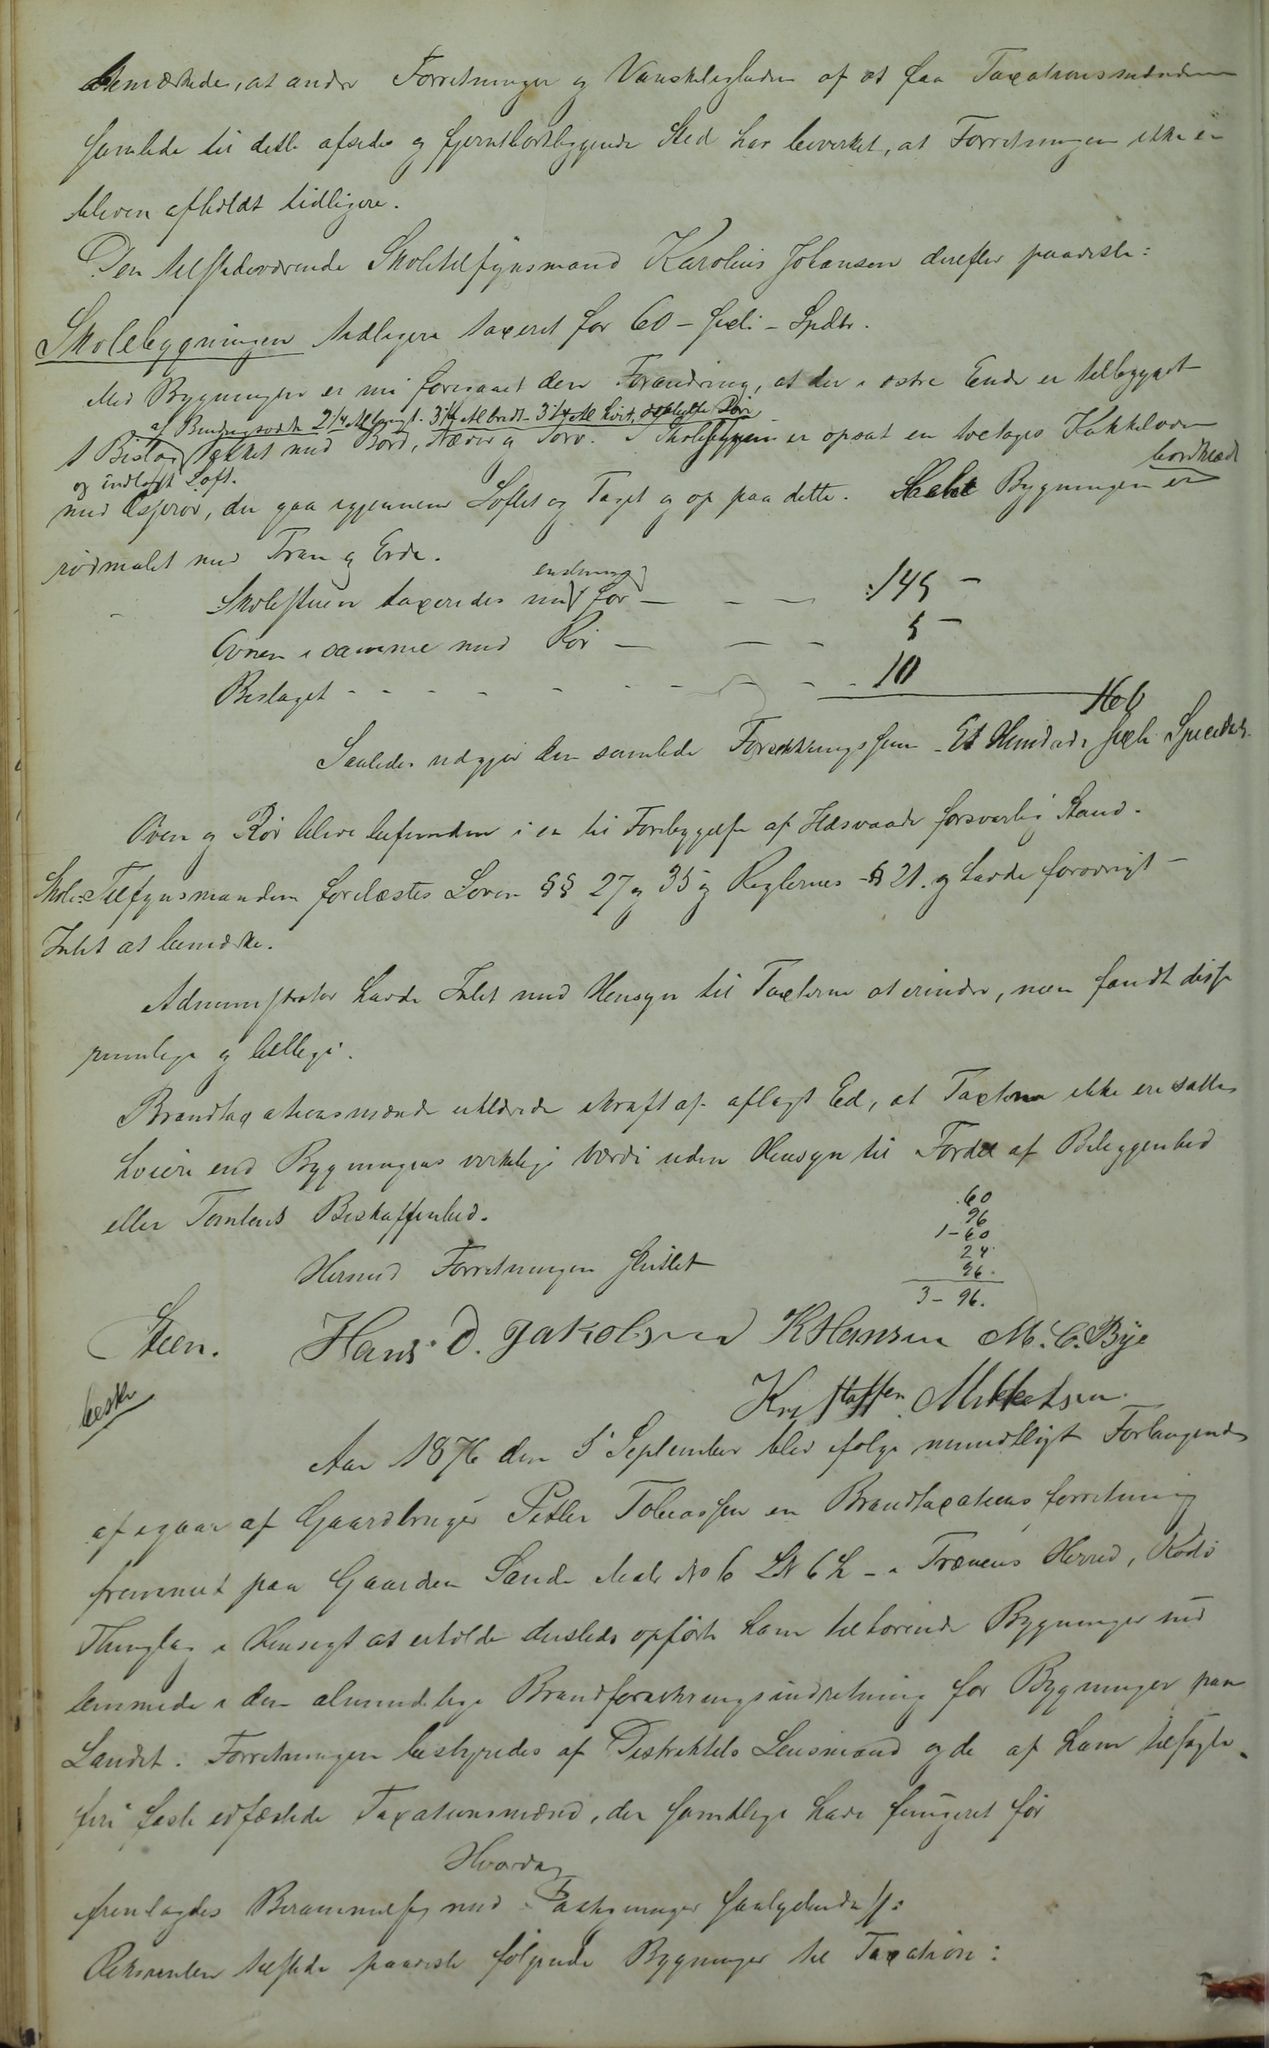 bemærkede, at andre Forretninger og Vanskeligheden af at faa Taxationsmændene
samlede til dette afsides og fjerntbortliggende Sted har bevirket, at Forretningen ikke er
bleven afholdt tidligere.
Den tilstedeværende Skoletilsynsmand Karolius Johansen derefter paaviste:
Skolebygningen tidligere taxeret for 60 - sexti - Spdlr.
Med Bygningen er nu foregaaet den Forandring, at der i østre Ende er tilbygget
af Bindingsværk 2 1/4 Al langt - 3 1/4 Al bredt - 3 1/4 Al høit, Dør
1 Bislag tækket med Bord, Næver og Torv. I Skolebyggn er opsat en toetages Kakkelovn
og indlagt Loft.
bordklædt
med Rør, der gaa igjennem Loftet og Taget og op paa dette. Bygningen er
rødmalet med Tran og Erde.
Skolestuen taxeredes nu for — — — 145 —
Ovnen i samme med Rør — — — 5 —
Bislaget - - - - - - - - 10
160
Saaledes udgjør den samlede Forsikringssum - Et Hundrede sexti Speciedlr.
Ovn og Rør bleve befunden i en til Forebyggelse af Ildsvaade forsvarlig Stand.
Skole-Tilsynsmanden forelæstes Loven §§ 27 og 35 og Reglernes § 21. og havde forøvrigt
Intet at bemærke.
Administrator havde Intet med Hensyn til Taxterne at erindre, men fandt disse
rimelige og billige.
Brandtaxationsmænd erklærede i kraft af aflagt Ed, at Taxterne ikke ere satte
høiere end Bygningens virkelige Værdi uden Hensyn til Fordel af Beliggenhed
eller Tomtens Beskaffenhed.
60
96
1 - 60
24
96.
3 - 96.
Hermed Forretningen sluttet
Steen. Hans. D. Jakobsen K Hansen M. C. Bye
Kristoffer Mikkelsen.
beskr
Aar 1876 den 5 September blev ifølge mundtligt Forlangende
af igaar af Gaardbruger Petter Tobiassen en Brandtaxations forretning
fremmet paa Gaarden Sande Matr No 6 LN 6 L - i Trænens Herred, Rødø
Thinglag i Hensigt at erholde dersteds opførte ham tilhørende Bygninger ind
lemmede i den almindelige Brandforsikringsindretning for Bygninger paa
Landet. Forretningen bestyredes af Distriktets Lensmand og de af ham tilsagte
fire faste edfæstede Taxationsmænd, der samtlige have fungeret før
Hvorda
fremlagdes Berammelse med Paategninger saalydende ff:
Rekvirenten tilstede paaviste følgende Bygninger til Taxation: